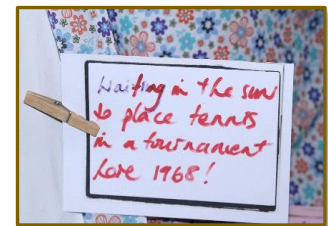 Waiting in the sun
to place tennis
in a tournament
Hove 1968!